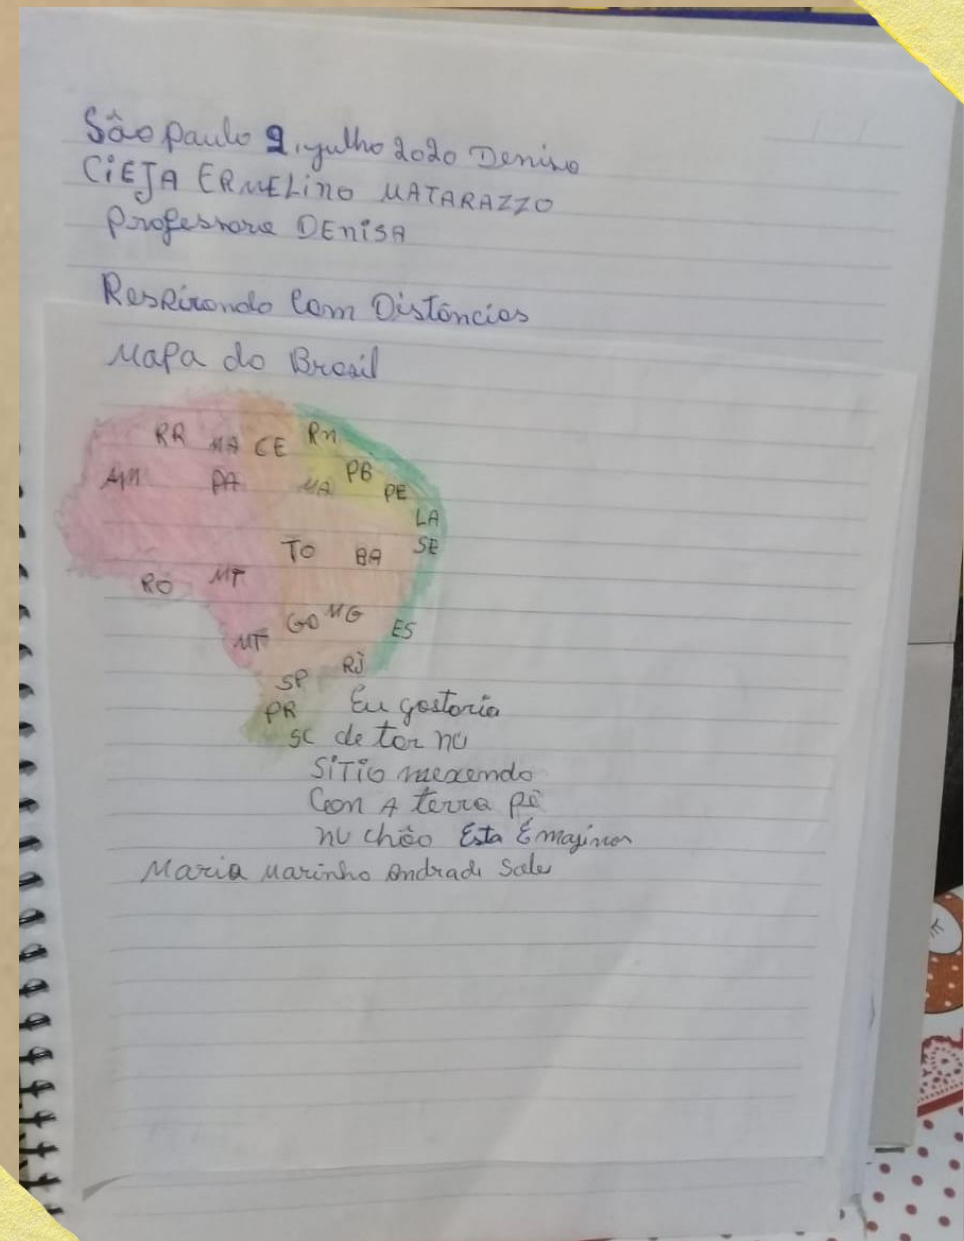 São Paulo 9, julho 2020 Denise
CiEJA ERMELino MATARAZZO
Professora DEniSA
Respirando Com Distâncias
Mapa do Brasil
RR MA CE Rn
AM PA MA PB PE
LA
TO BA SE
RO MT
GO MG ES
MT
SP RJ
PR Eu gostaria
SC de tar nu
SiTio mexendo
Con A terra pé
nu chão Esta Émaginon
Maria Marinho Andrade Sales